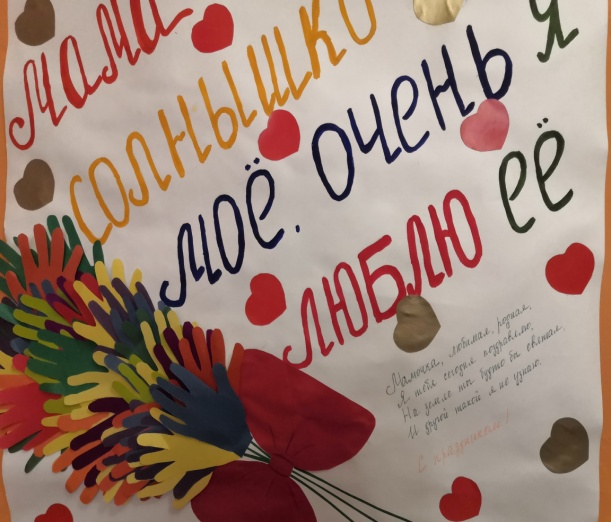 мама
солнышко
моё. очень я
люблю её
Мамочка, любимая, родная,
Я тебя сегодня поздравлю,
На земле ты будто бы святая,
И другой такой я не узнаю.
С праздником!